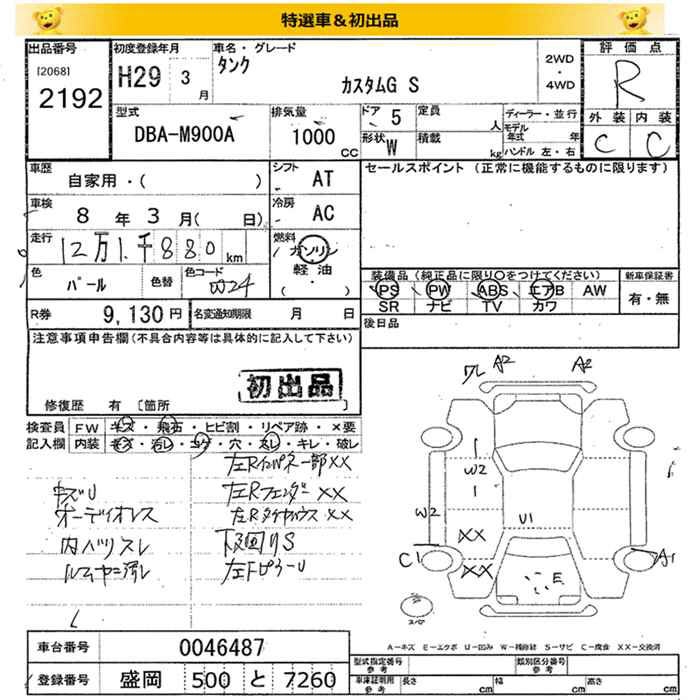 特選車＆初出品
出品番号
[2068]
2192
初度登録年月
H29 3月
車名・グレード
タンク
カスタムG S
2WD
・
4WD
評価点
R
外装 内装
C C
型式
DBA-M900A
排気量
1000 CC
ドア 5
形状 W
定員 人
積載 kg
ディーラー・並行
モデル年式 年
ハンドル 左・右
車歴
自家用・( )
シフト AT
セールスポイント (正常に機能するものに限ります)
車検
8年3月( 日)
冷房 AC
走行
12万1千880km
燃料
ガソリン
軽油
( ・ )
色
パール
色替
色コード
W24
装備品 (純正品に限り○をつけてください)
PS PW ABS エアB AW
SR ナビ TV カワ
新車保証書
有・無
R券 9,130円
名変通知期限 月 日
後日品
注意事項申告欄(不具合内容等は具体的に記入して下さい)
初出品
修復歴 有 [箇所
検査員 FW キズ・飛石・ヒビ割・リペア跡・×要
記入欄 内装 キズ・汚レ・コゲ・穴・スレ・キレ・破レ
左Rインパネ一部XX
キズU
左RフェンダーXX
オーディオレス
左RタイヤハウスXX
内ハゲスレ
下回りS
ルーム ヤニ汚レ
左FピラーU
ワレ A2 A2
W2
W2
U1
XX
XX
C1
A1
E
スペア
A－キズ E－エクボ U－凹み W－補修跡 S－サビ C－腐食 XX－交換済
車台番号 0046487
登録番号 盛岡 500 と 7260
型式指定番号 参考
類別区分番号 参考
車庫証明用 参考
長さ cm
幅 cm
高さ cm